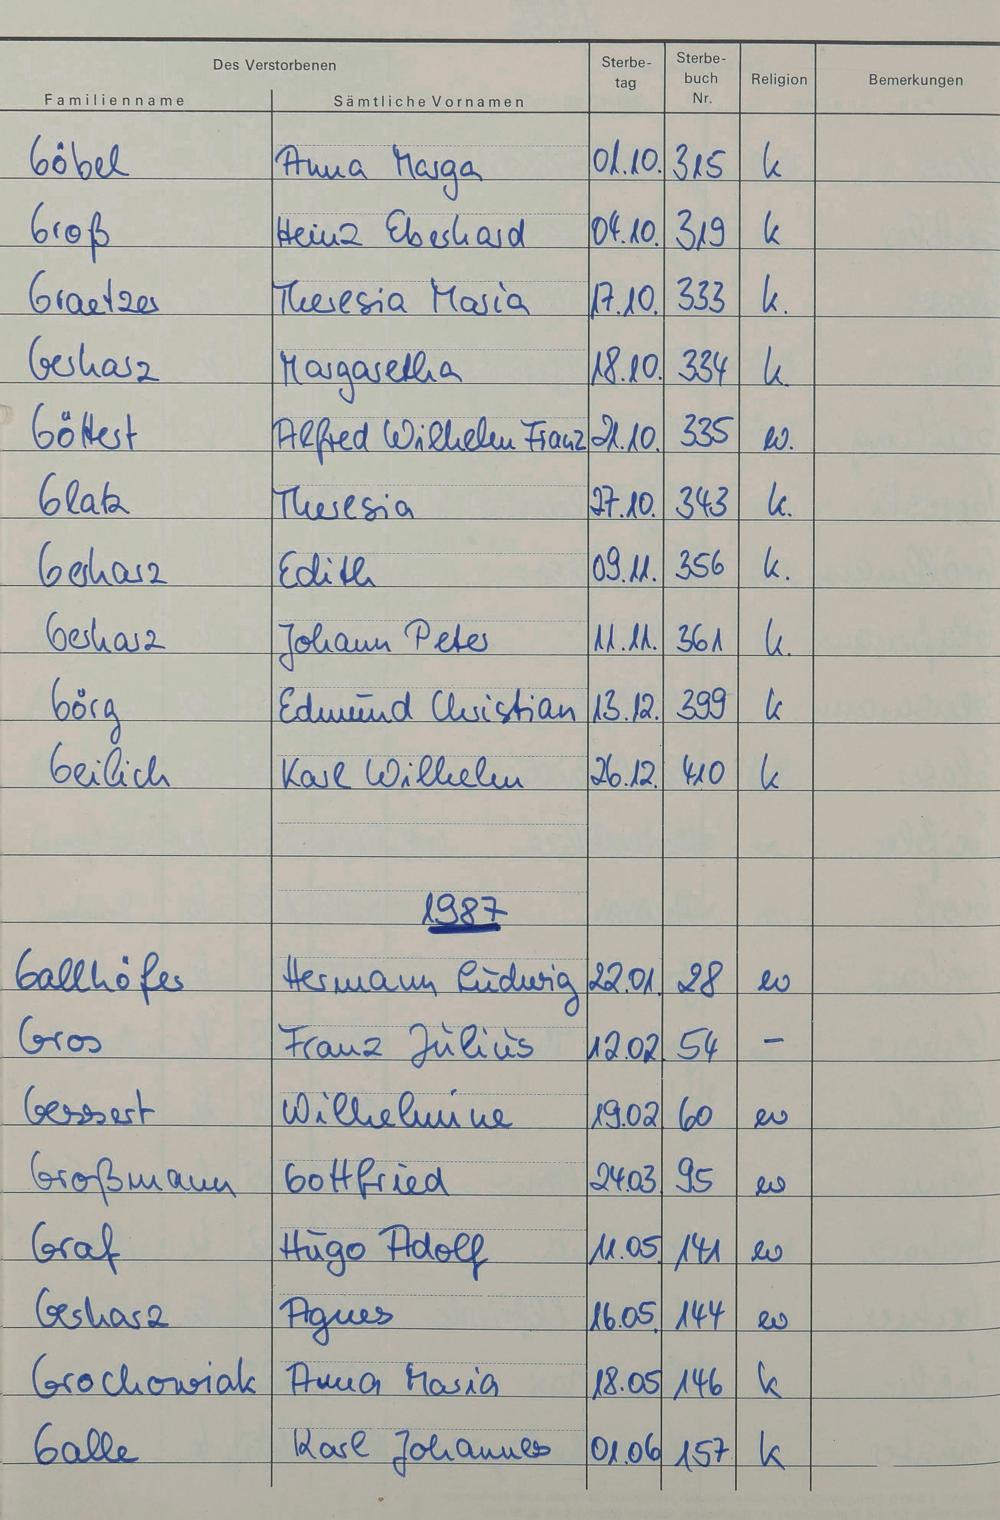 Des Verstorbenen
Familienname Sämtliche Vornamen Sterbe-tag Sterbe-buch Nr. Religion Bemerkungen
Göbel Anna Marga 01.10. 315 k
Groß Heinz Eberhard 04.10. 319 k
Graetzer Theresia Maria 17.10. 333 k.
Gerharz Margaretha 18.10. 334 k.
Göttert Alfred Wilhelm Franz 21.10. 335 ev.
Glatz Theresia 27.10. 343 k.
Gerharz Edith 09.11. 356 k.
Gerharz Johann Peter 11.11. 361 k.
Görg Edmund Christian 13.12. 399 k
Geilich Karl Wilhelm 26.12. 410 k
1987
Gallhöfer Hermann Ludwig 22.01. 28 ev
Gros Franz Julius 12.02. 54 –
Gessert Wilhelmine 19.02 60 ev
Großmann Gottfried 24.03. 95 ev
Graf Hugo Adolf 11.05 141 ev
Gerharz Agnes 16.05. 144 ev
Grochowiak Anna Maria 18.05 146 k
Galle Karl Johannes 01.06 157 k